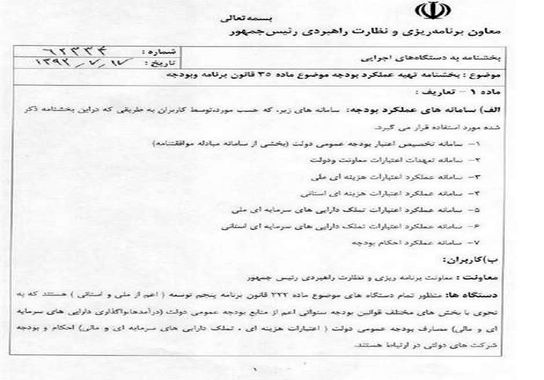 بسمه تعالی
معاون برنامه‌ریزی و نظارت راهبردی رئیس‌جمهور
بخشنامه به دستگاه‌های اجرایی
شماره : ۶۲۳۳۴
تاریخ : ۱۳۹۲٫۷٫۱۷
موضوع : بخشنامه تهیه عملکرد بودجه موضوع ماده ۳۵ قانون برنامه وبودجه
ماده ۱ – تعاریف :
الف) سامانه های عملکرد بودجه: سامانه های زیر، که حسب مورد،توسط کاربران به طریقی که دراین بخشنامه ذکر
شده مورد استفاده قرار می گیرد.
۱– سامانه تخصیص اعتبار بودجه عمومی دولت (بخشی از سامانه مبادله موافقتنامه)
۲– سامانه تعهدات اعتبارات معاونت ودولت
۳– سامانه عملکرد اعتبارات هزینه ای ملی
۴– سامانه عملکرد اعتبارات هزینه ای استانی
۵– سامانه عملکرد اعتبارات تملک دارایی های سرمایه ای ملی
۶– سامانه عملکرد اعتبارات تملک دارایی های سرمایه ای استانی
۷– سامانه عملکرد احکام بودجه
ب)کاربران:
معاونت : معاونت برنامه ریزی و نظارت راهبردی رئیس جمهور
دستگاه ها: منظور تمام دستگاه های موضوع ماده ۲۲۲ قانون برنامه پنجم توسعه ( اعم از ملی و استانی ) هستند که به
نحوی با بخش های مختلف قوانین بودجه سنواتی اعم از منابع بودجه عمومی دولت (درآمدها،واگذاری دارایی های سرمایه
ای و مالی) مصارف بودجه عمومی دولت ( اعتبارات هزینه ای ، تملک دارایی های سرمایه ای و مالی) احکام و بودجه
شرکت های دولتی در ارتباط هستند.
۱